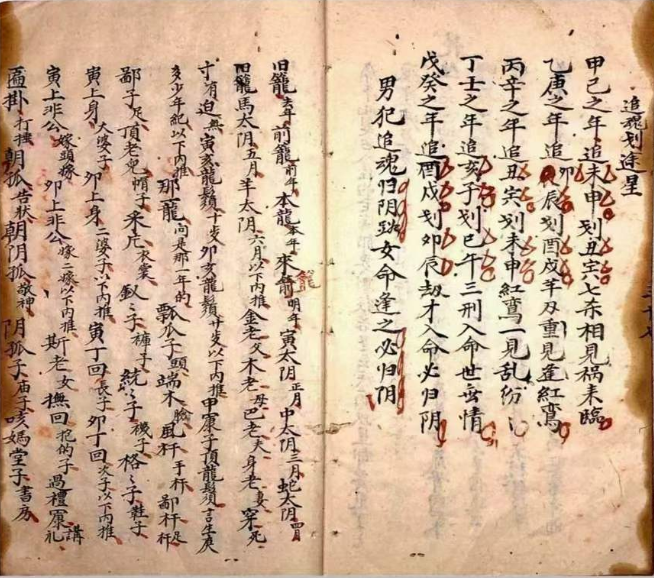 追魂刬途星
甲己之年追未申刬丑宗七杀相見祸未臨
乙庚之年追卯辰刬酉戍羊刃重見逢紅鸾
丙辛之年追丑宗刬未申紅鸾一見乱纷
丁壬之年追亥子刬巳午三刑入命世無情
戊癸之年追酉戍刬卯辰劫才入命必归阴
男犯追魂归阴路女命逢之必归阴
旧籠去年前籠前年本龍本年來籠明年寅太阴正月申太阴三月蛇太阴四月
旧籠馬太阴五月羊太阴六月以下内推金老父木老母巴老夫身老妻穿死
寸有迫無寅亥龍鬚十岁卯亥龍鬚廿岁以下内推甲庫子頂龍鬚言生庚
多少年紀以下内推那一龍问是那一年的瓢瓜子頭端木臉風杆手杆鄙杆足杆
鄙子尺頂老兒帽子采片衣裳釵々子褲子統々子襪子格々子鞋子
寅上身大婆子卯上身二婆子以下内推寅丁回長子卯丁回次子以下内推
寅上非公嫁頭嫁卯上非公嫁二嫁以下内推斯老女撫回抱的子過禮廪講礼
匾掛打挂朝孤告状朝阴孤敬神阴孤子庙子唛媽堂子書房